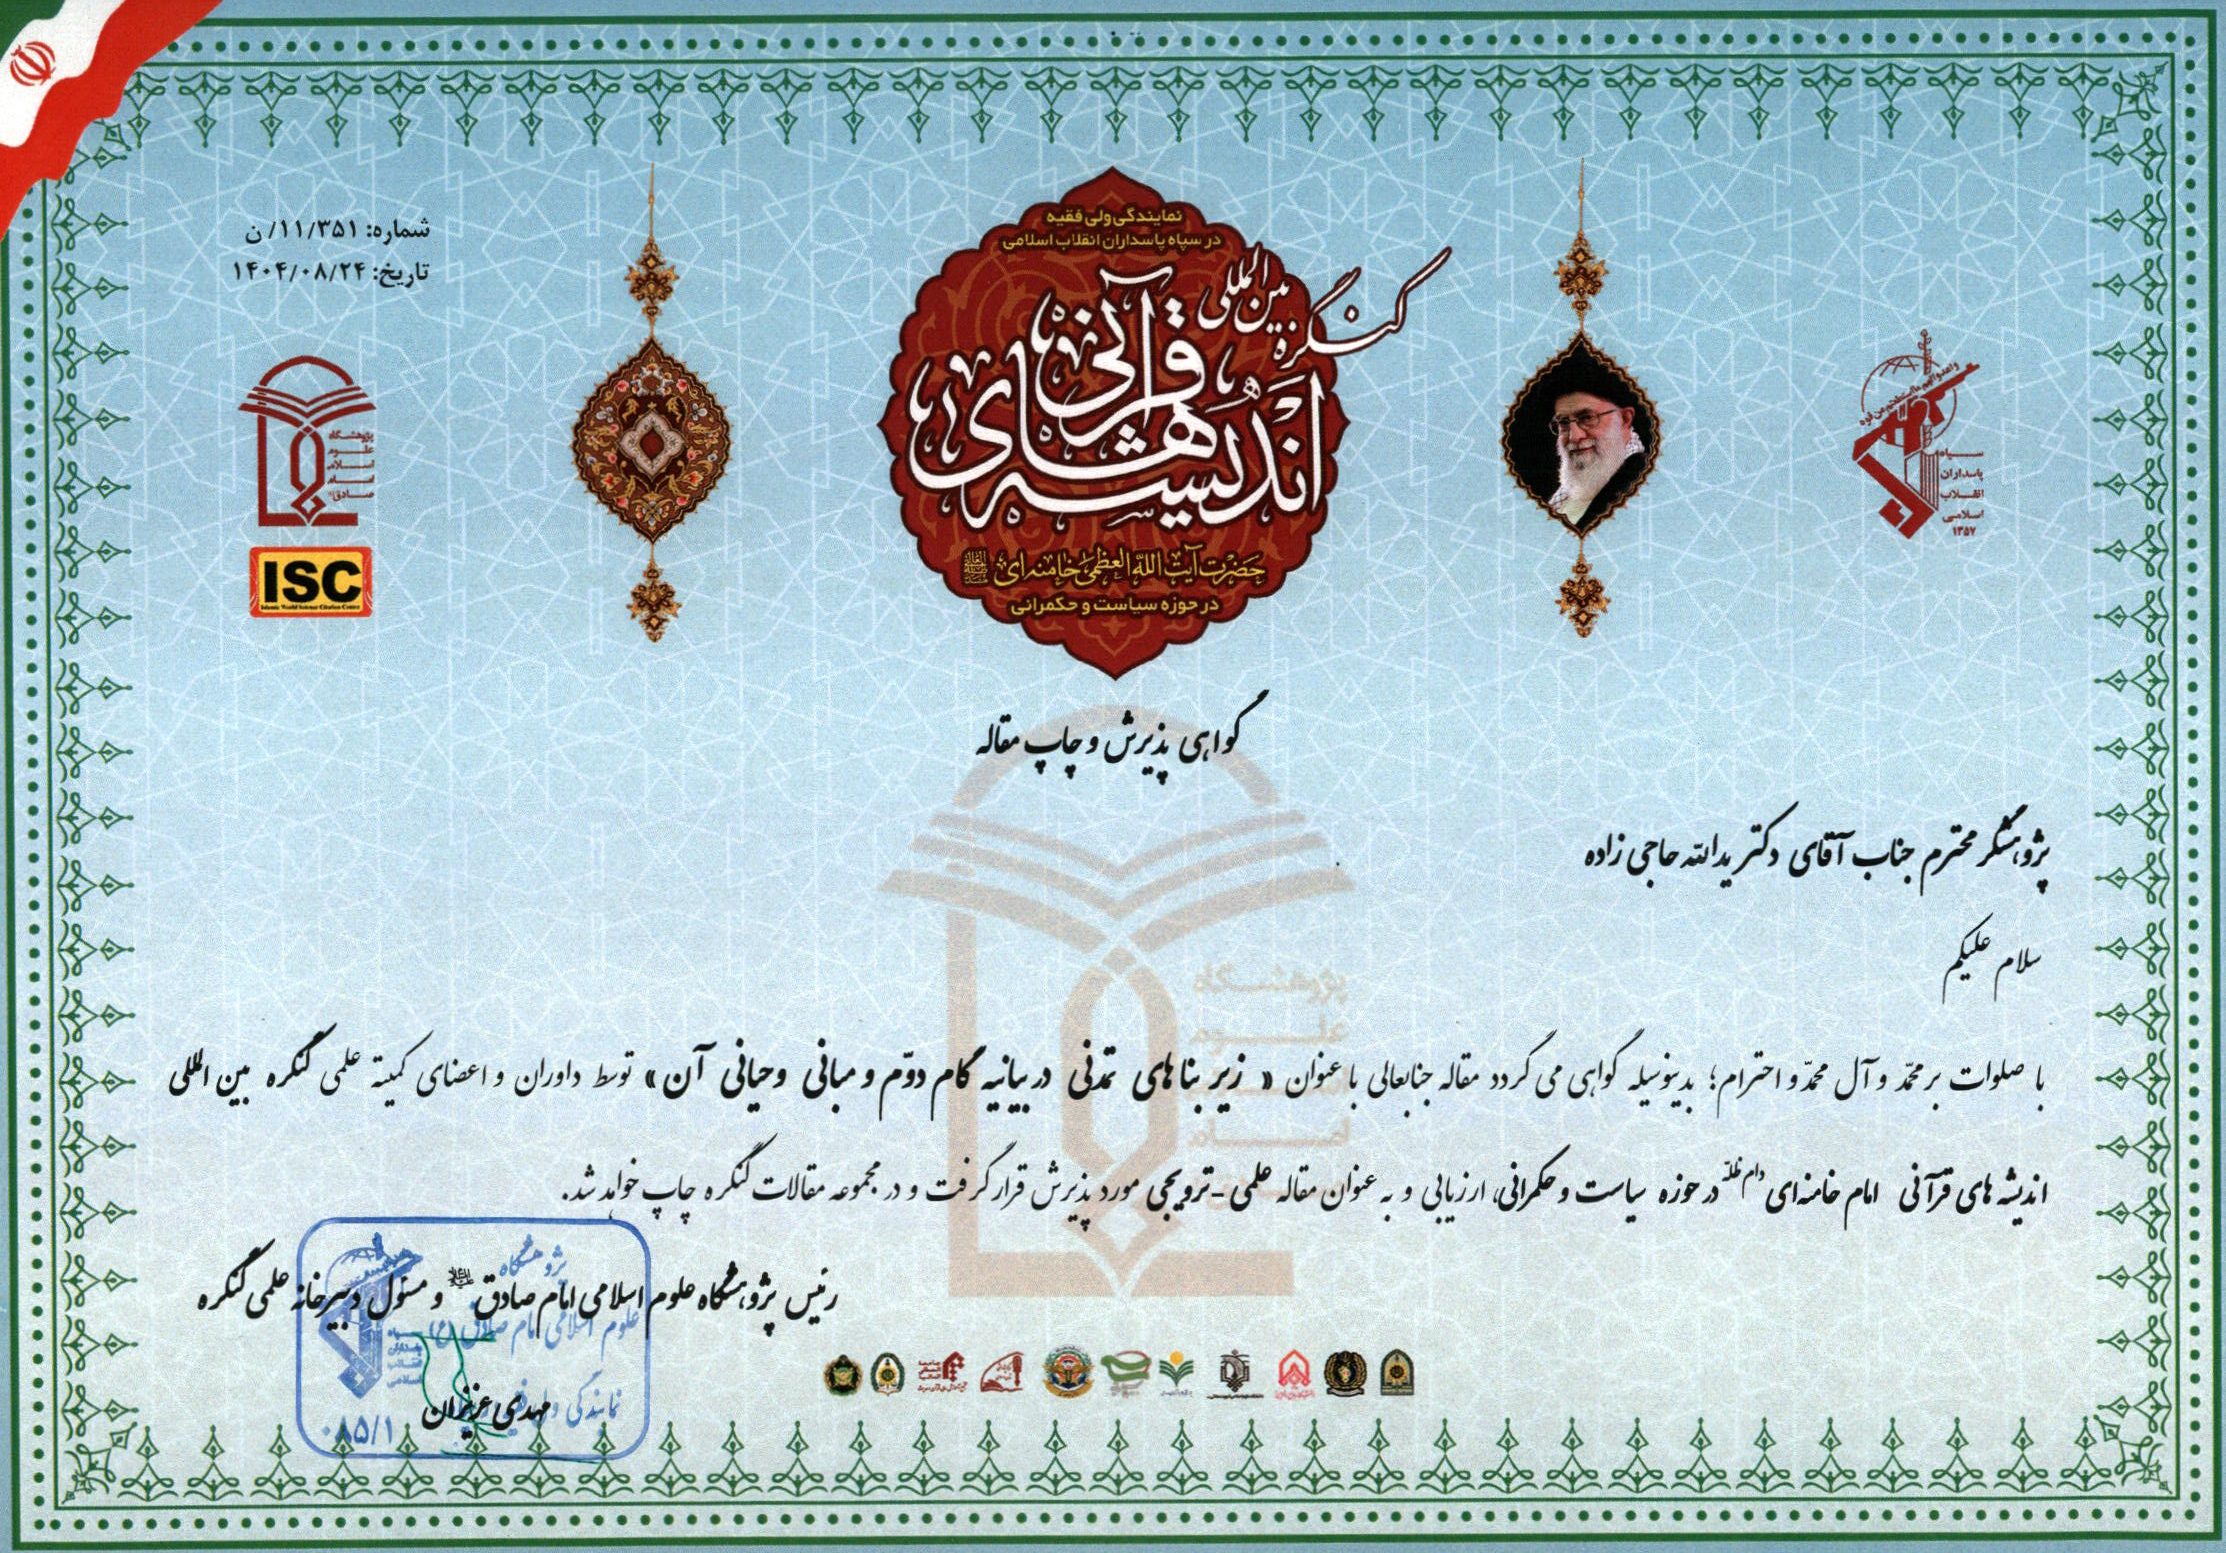 شماره: ۱۱/۳۵۱/ ن
تاریخ: ۱۴۰۴/۰۸/۲۴
نمایندگی ولی فقیه
در سپاه پاسداران انقلاب اسلامی
کنگره بین المللی
اندیشه های قرآنی
حضرت آیت الله العظمی خامنه ای
در حوزه سیاست و حکمرانی
سپاه
پاسداران
انقلاب
اسلامی
۱۳۵۷
پژوهشگاه
علوم
اسلامی
امام
صادق
ISC
Islamic World Science Citation Center
گواهی پذیرش و چاپ مقاله
پژوهشگر محترم جناب آقای دکتر یدالله حاجی زاده
سلام علیکم
با صلوات بر محمّد و آل محمّد و احترام؛ بدینوسیله گواهی می گردد مقاله جنابعالی با عنوان « زیر بنا های تمدنی در بیانیه گام دوّم و مبانی وحیانی آن» توسط داوران و اعضای کمیته علمی کنگره بین المللی
اندیشه های قرآنی امام خامنه ای دام ظلّه در حوزه سیاست و حکمرانی، ارزیابی و به عنوان مقاله علمی -ترویجی مورد پذیرش قرار گرفت و در مجموعه مقالات کنگره چاپ خواهد شد.
رئیس پژوهشگاه علوم اسلامی امام صادق و مسئول دبیرخانه علمی کنگره
مهدی عزیزان
پژوهشگاه
علوم اسلامی امام صادق (ع)
سپاه
پاسداران
انقلاب
اسلامی
نمایندگی
پژوهشگاه
علوم
امام